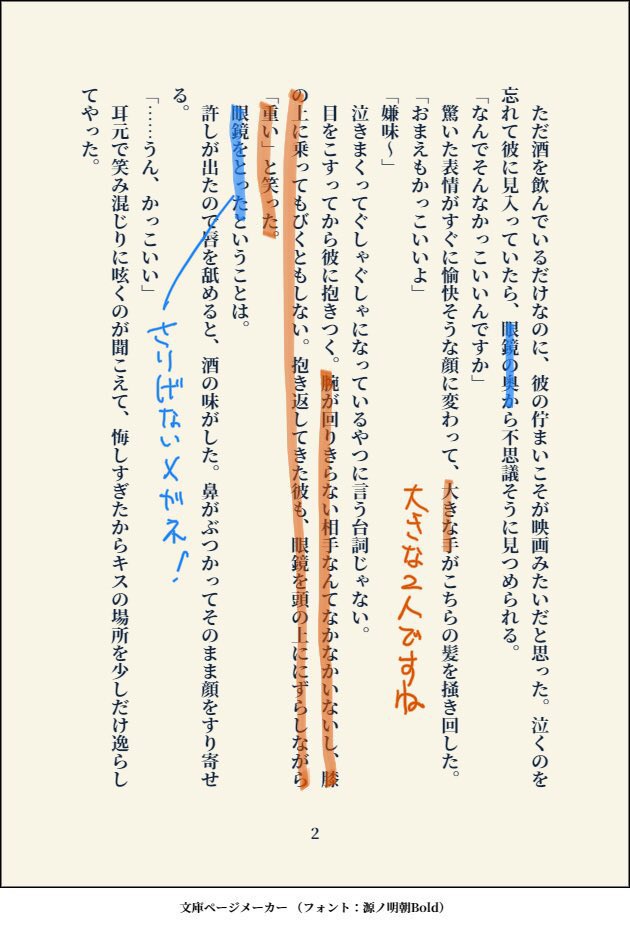 ただ酒を飲んでいるだけなのに、彼の佇まいこそが映画みたいだと思った。泣くのを
忘れて彼に見入っていたら、眼鏡の奥から不思議そうに見つめられる。
「なんでそんなかっこいいんですか」
　驚いた表情がすぐに愉快そうな顔に変わって、大きな手がこちらの髪を掻き回した。
「おまえもかっこいいよ」
「嫌味〜」
　泣きまくってぐしゃぐしゃになっているやつに言う台詞じゃない。
　目をこすってから彼に抱きつく。腕が回りきらない相手なんてなかなかいないし、膝
の上に乗ってもびくともしない。抱き返してきた彼も、眼鏡を頭の上ににずらしながら
「重い」と笑った。
　眼鏡をとったということは。
　許しが出たので唇を舐めると、酒の味がした。鼻がぶつかってそのまま顔をすり寄せ
る。
「……うん、かっこいい」
　耳元で笑み混じりに呟くのが聞こえて、悔しすぎたからキスの場所を少しだけ逸らし
てやった。
大きな2人ですね
さりげないメガネ！
2
文庫ページメーカー （フォント：源ノ明朝Bold）